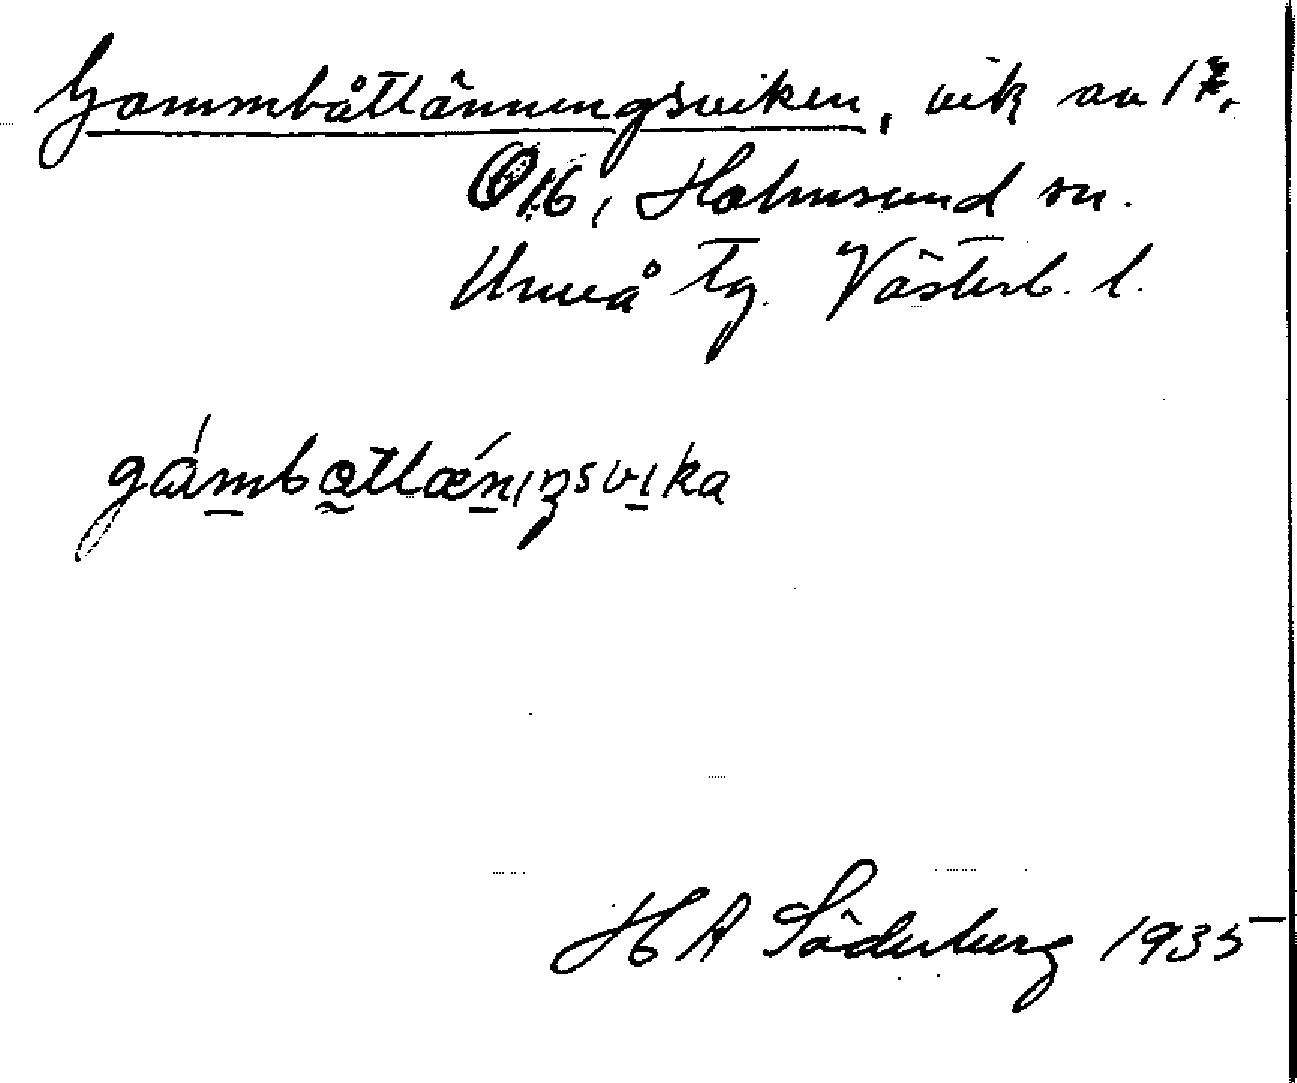 Gammbåtlänningsviken, vik av
Holmsund sn.
Umeå tg. Västerb. l.
gámbɑtlǽniŋsvika
H A Söderberg 1935